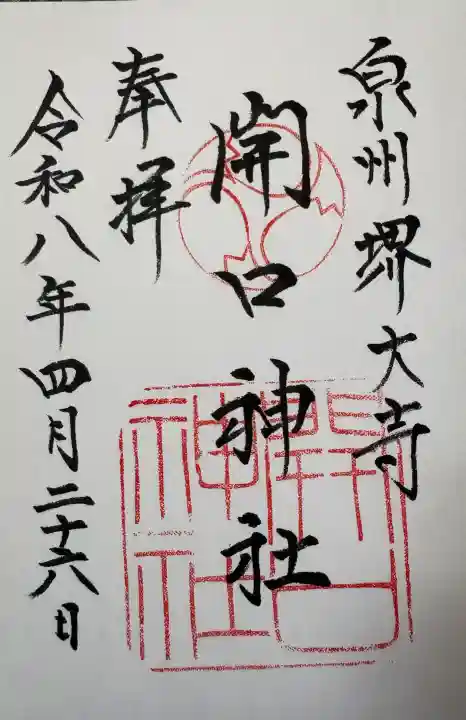 泉州堺大寺
開口神社
奉拝
令和八年四月二十六日
開口神社